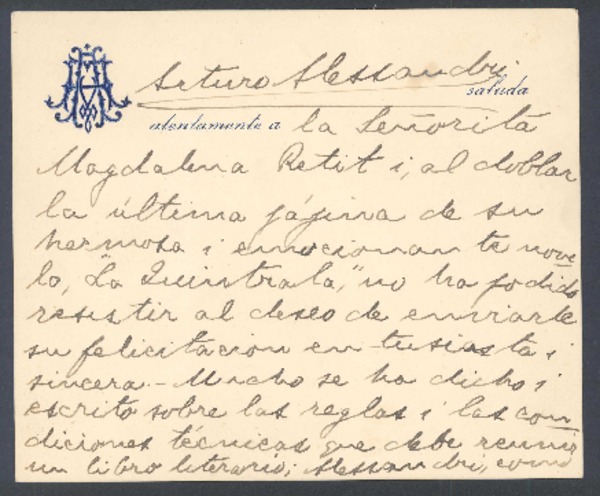 Arturo Alessandri
saluda
atentamente a la Señorita
Magdalena Petit i, al doblar
la última pájina de su
hermosa i emocionante nove
la, "La Quintrala," no ha podido
resistir al deseo de enviarle
su felicitación entusiasta i
sincera.- Mucho se ha dicho i
escrito sobre las reglas i las con
diciones técnicas que debe reunir
un libro literario; Alessandri, como